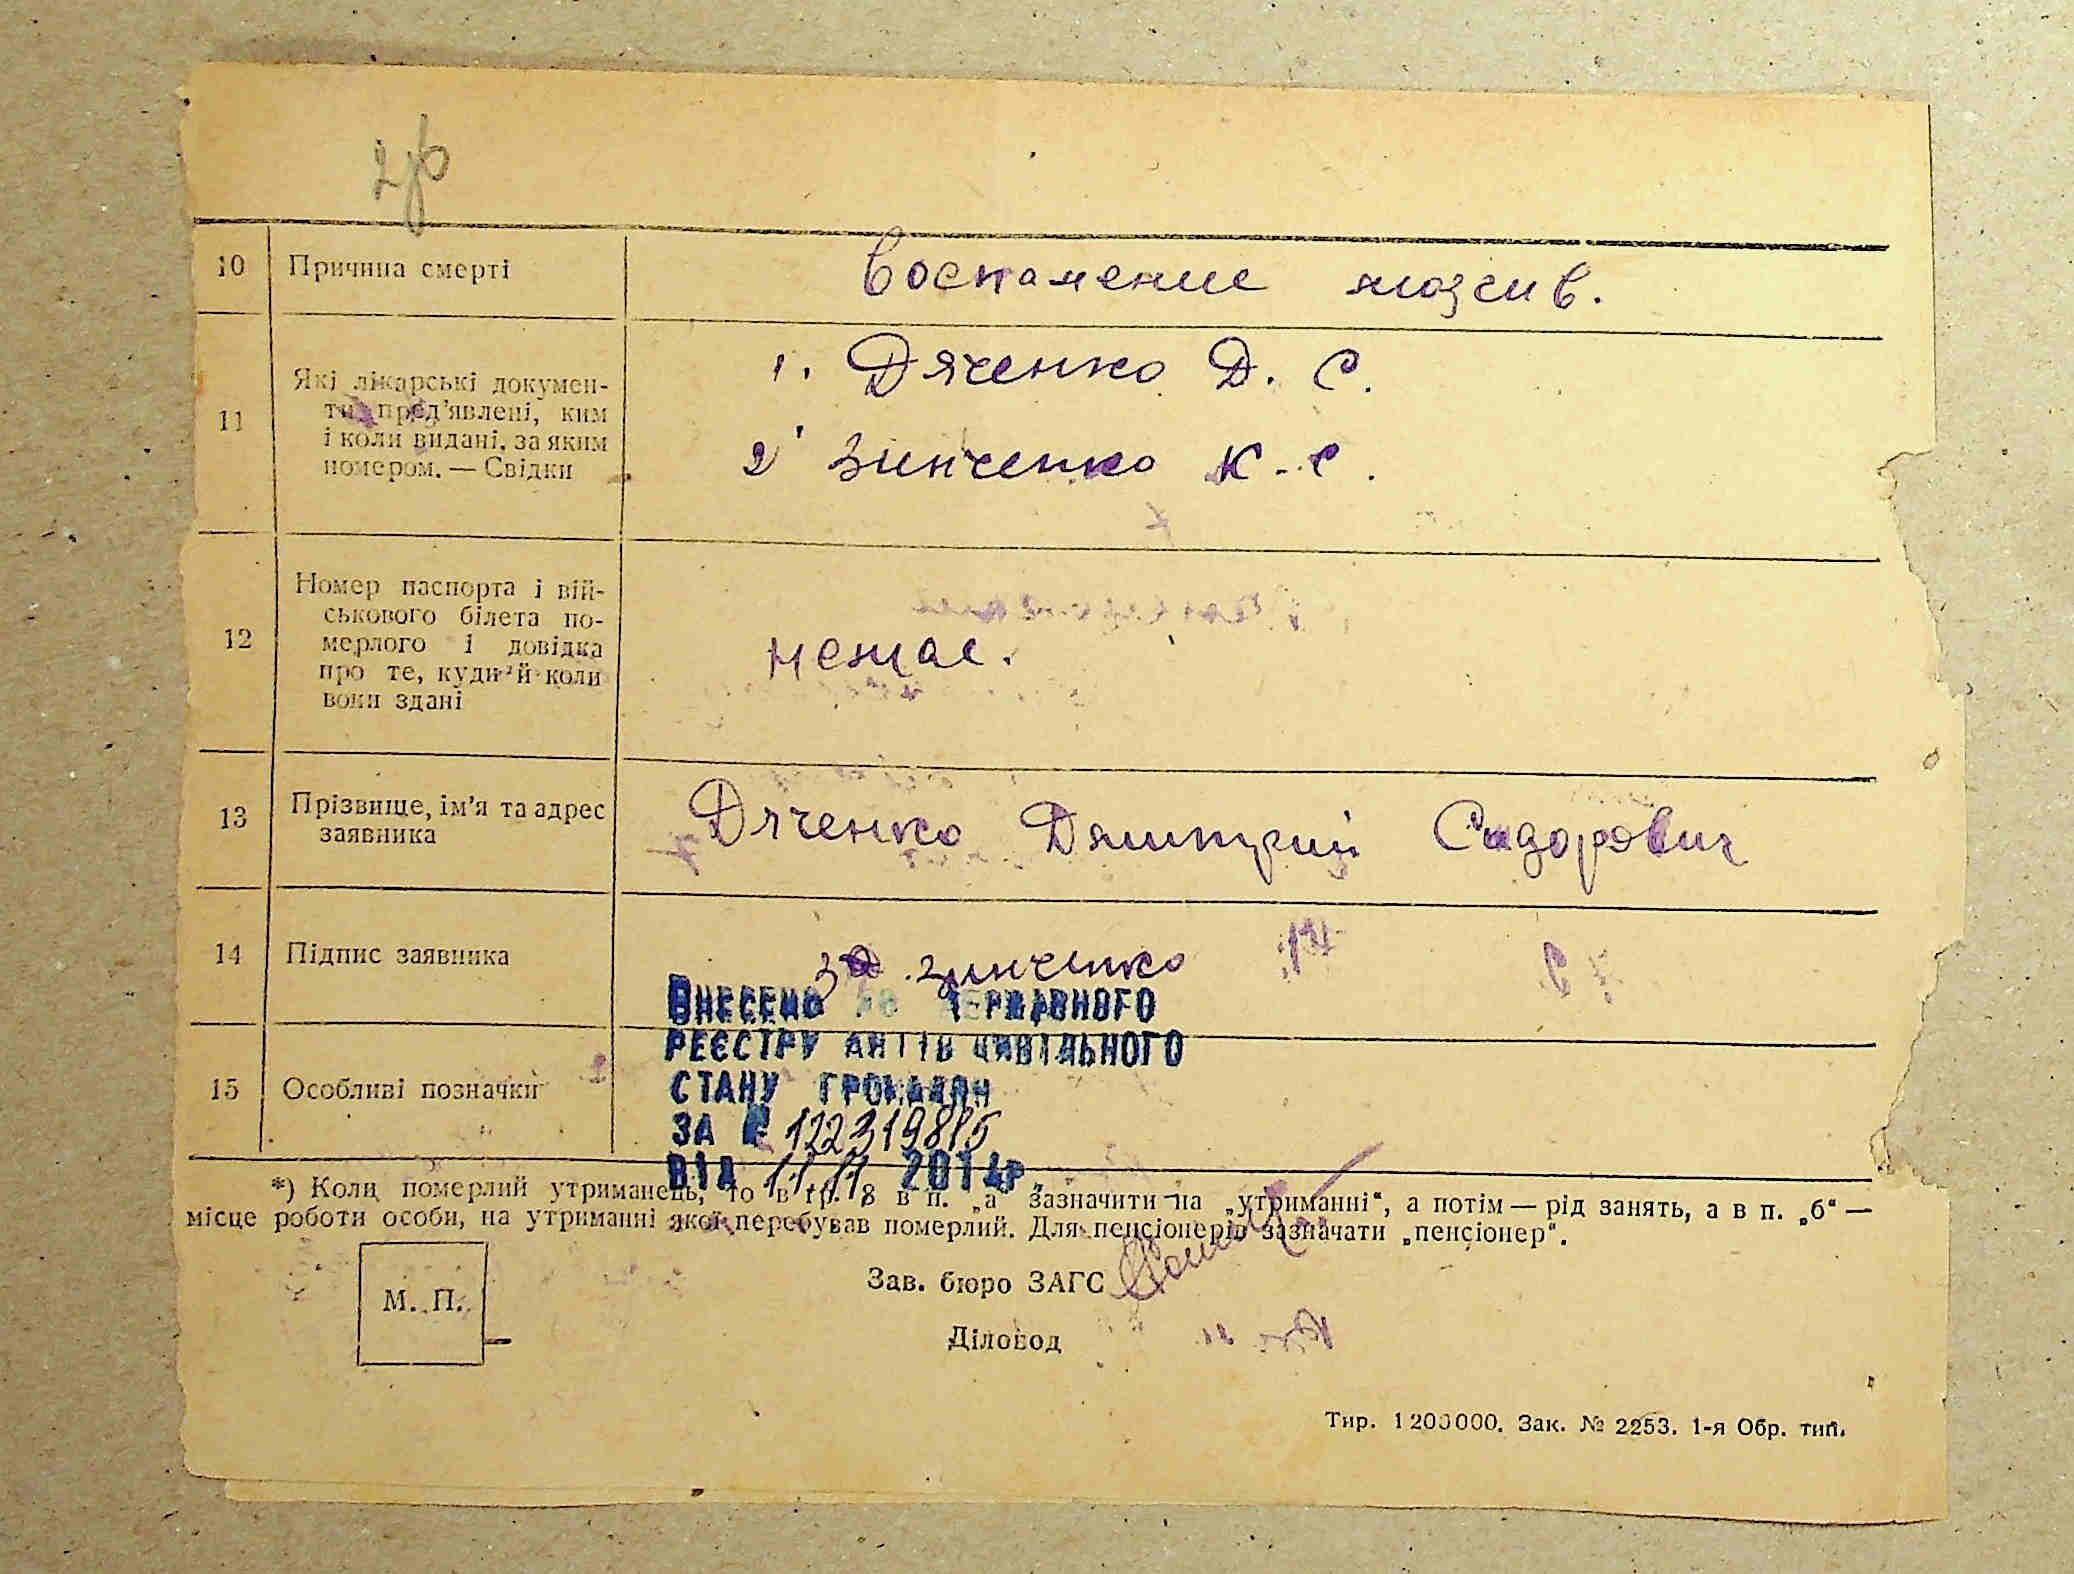 10 Причина смерті Воспаление мозгив.
11 Які лікарські докумен-
ти пред'явлені, ким
і коли видані, за яким
номером. — Свідки
1. Дяченко Д. С.
2 Зинченко К. С.
12 Номер паспорта і вій-
ськового білета по-
мерлого і довідка
про те, куди й коли
вони здані
немає.
13 Прізвище, ім'я та адрес
заявника
Дяченко Дмитрий Сидорович
14 Підпис заявника за Зинченко
ВНЕСЕНО ДО ДЕРЖАВНОГО
РЕЄСТРУ АКТІВ ЦИВІЛЬНОГО
СТАНУ ГРОМАДЯН
15 Особливі позначки
ЗА №
ВІД 11 11 2014р.
*) Коли померлий утриманець, то в гр. 8 в п. „а" зазначити на „утриманні", а потім — рід занять, а в п. „б" —
місце роботи особи, на утриманні якої перебував померлий. Для пенсіонерів зазначати „пенсіонер".
М. П.
Зав. бюро ЗАГС
Діловод
Тир. 1200000. Зак. № 2253. 1-я Обр. тип.